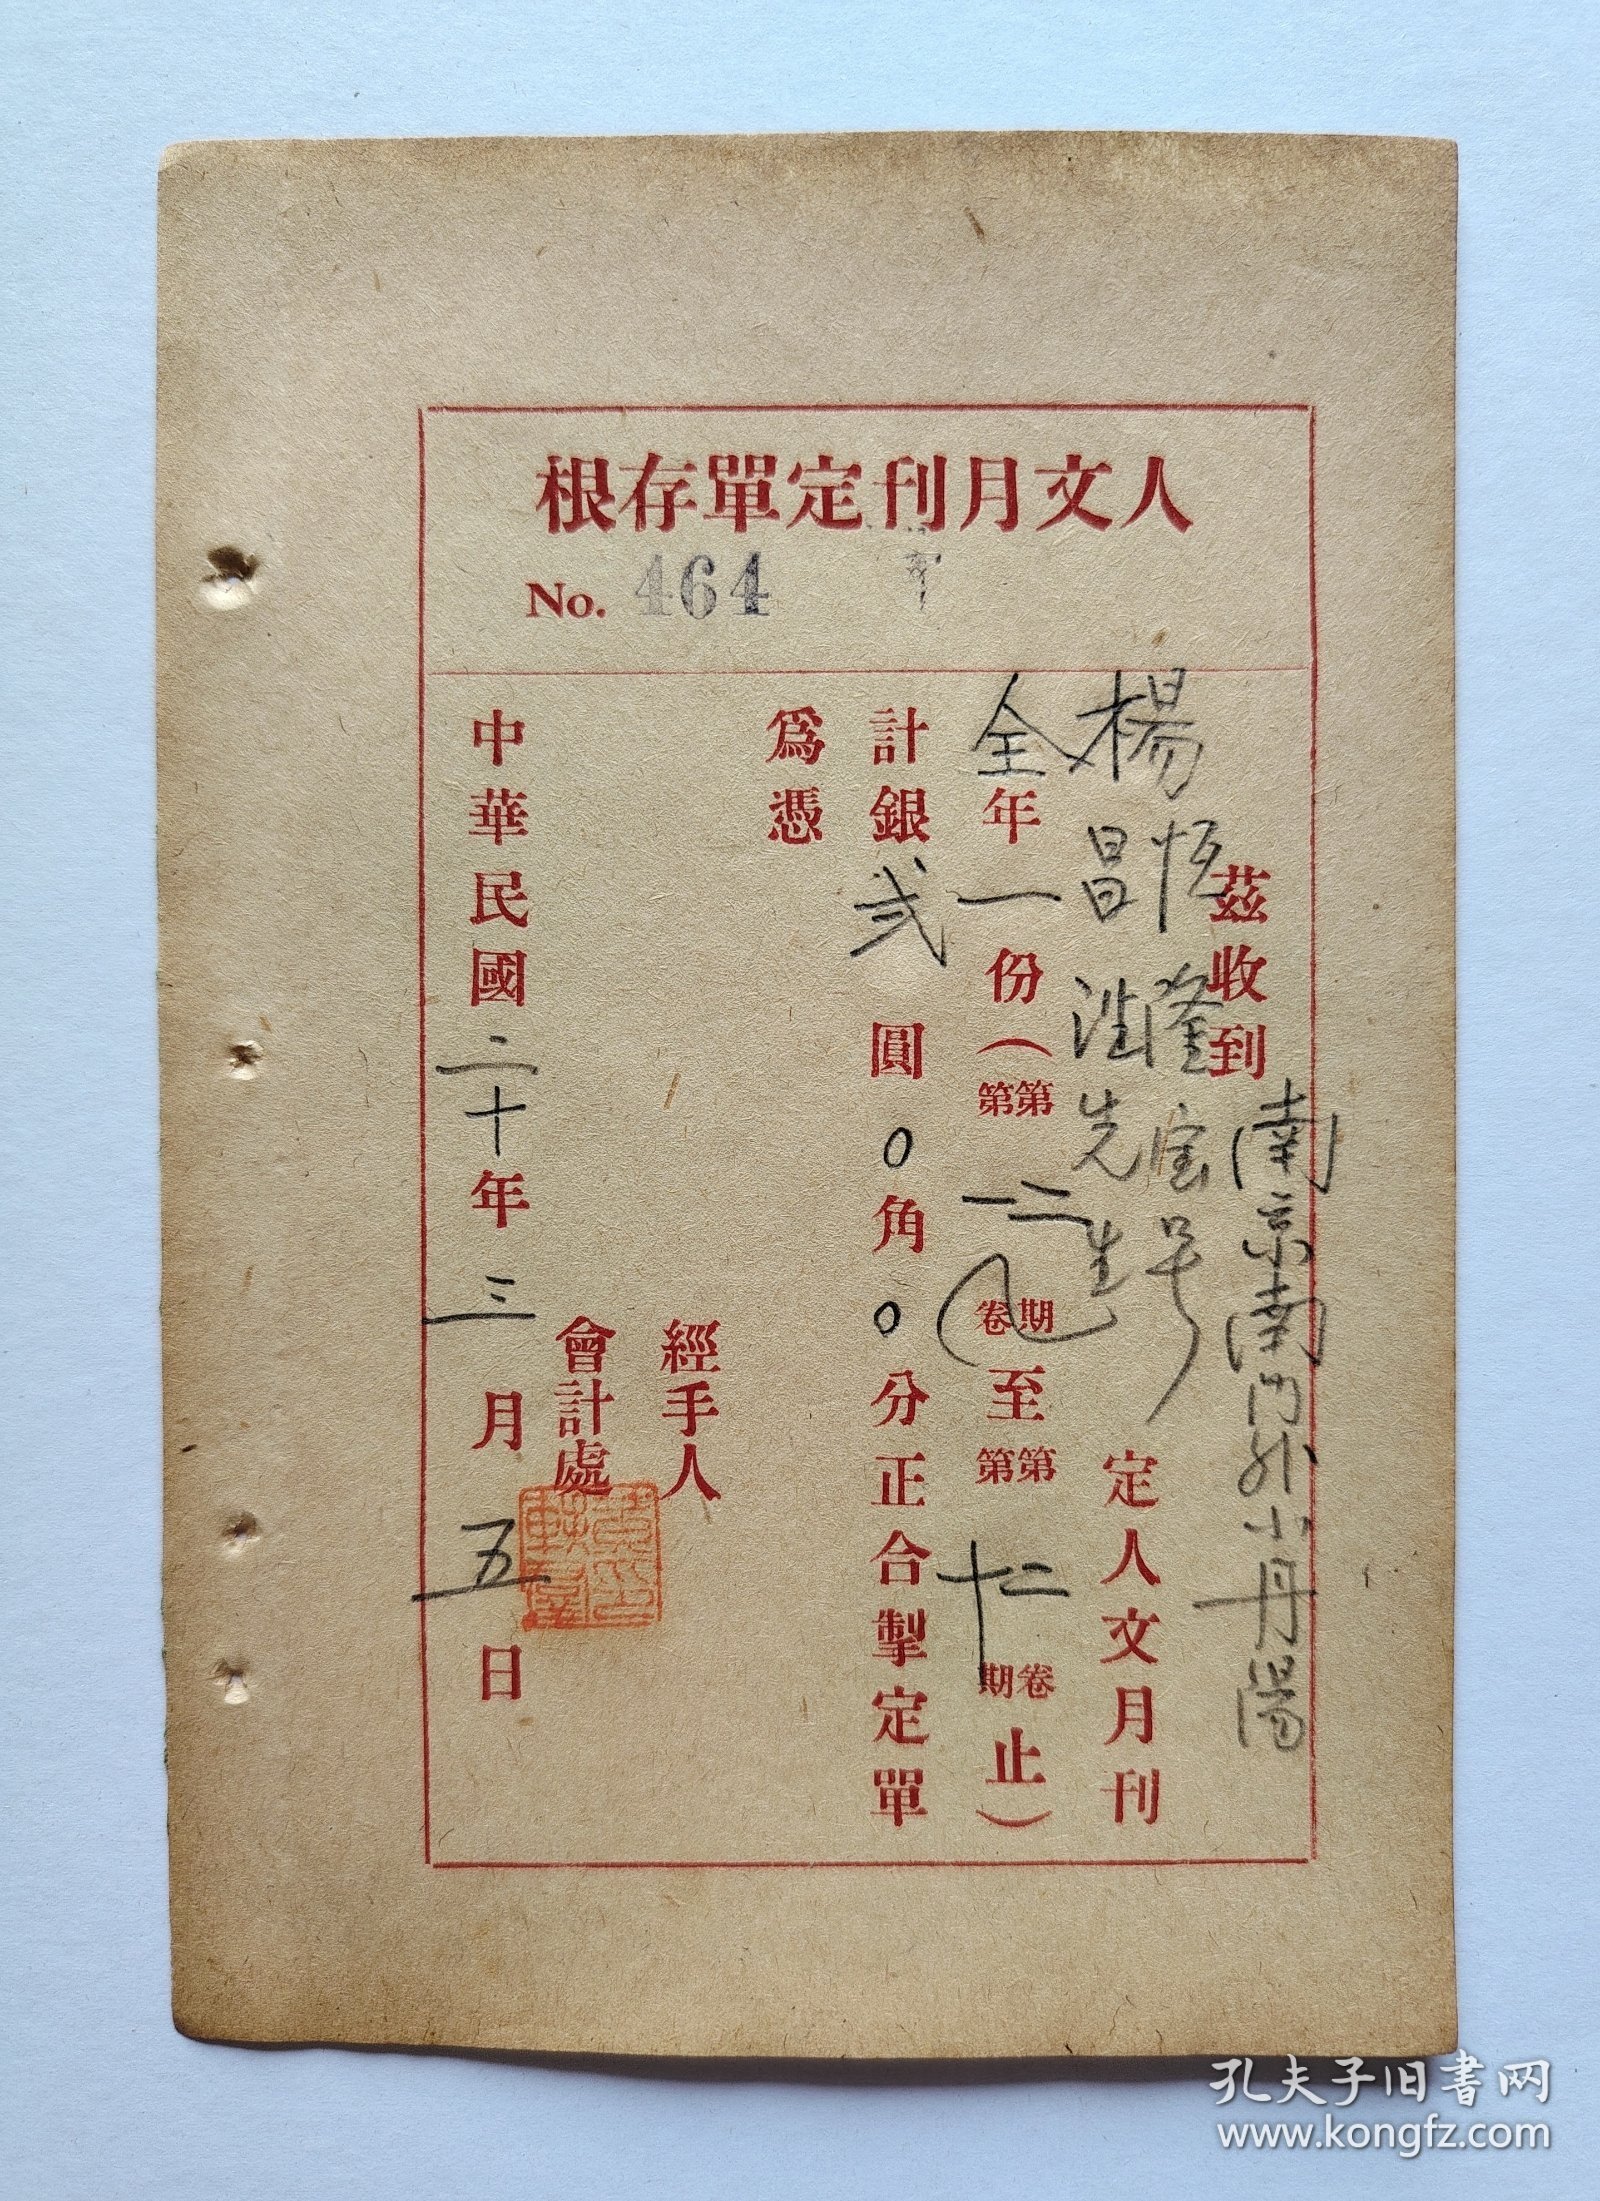 人文月刊定單存根
No. 464
茲收到南京南門外小丹陽
恆隆宝号
楊昌洪先生定人文月刊
全年一份（第二卷第一期至第二卷第十期止）
計銀弍圓0角0分正合掣定單
爲憑
經手人
會計處
中華民國二十年三月五日
孔夫子旧書网
www.kongfz.com